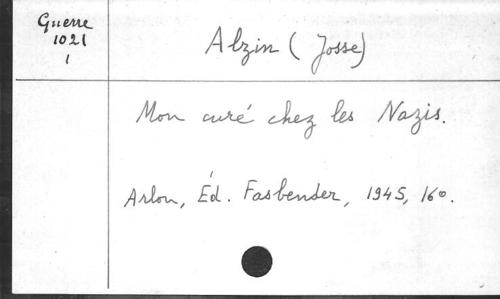 Guerre
1021
1
Alzin (Josse)
Mon curé chez les Nazis.
Arlon, Éd. Fasbender, 1945, 16º.